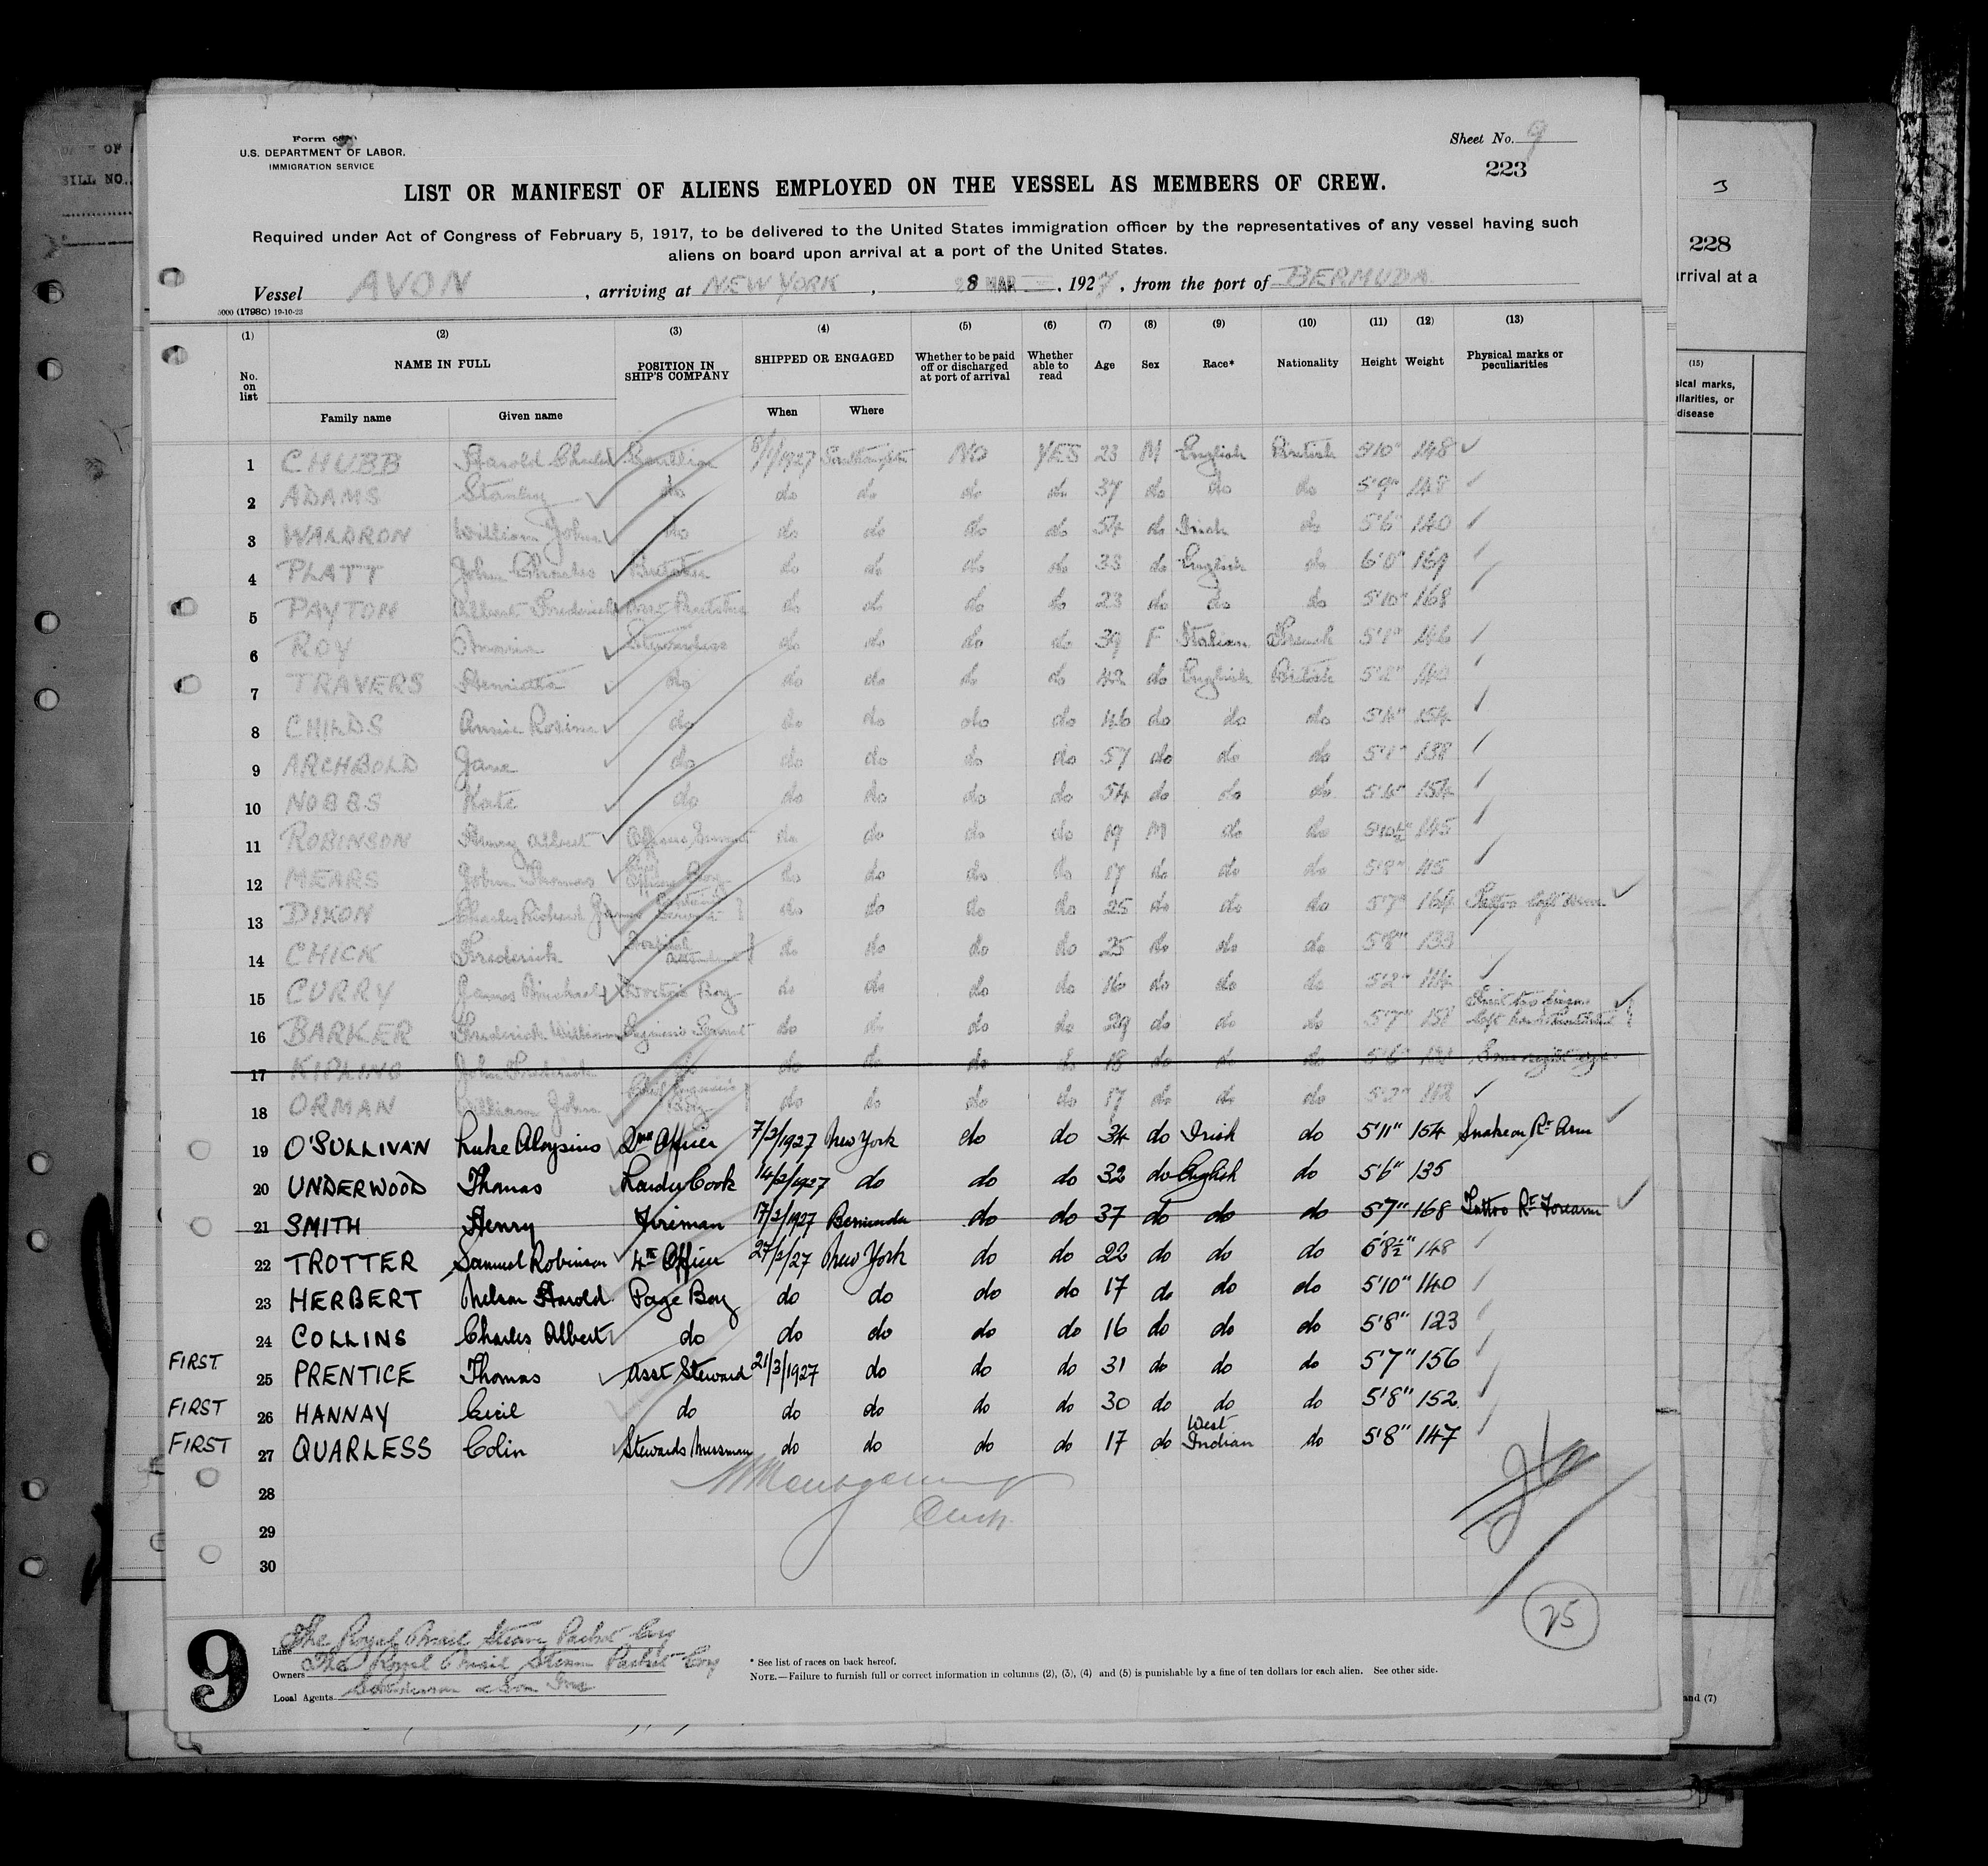 Form 680
U.S. DEPARTMENT OF LABOR.
IMMIGRATION SERVICE
Sheet No. 9
223
LIST OR MANIFEST OF ALIENS EMPLOYED ON THE VESSEL AS MEMBERS OF CREW.
Required under Act of Congress of February 5, 1917, to be delivered to the United States immigration officer by the representatives of any vessel having such
aliens on board upon arrival at a port of the United States.
Vessel AVON, arriving at NEW YORK, 28 MAR, 1927, from the port of BERMUDA
5000 (1798C) 19-10-23
(1) (2) (3) (4) (5) (6) (7) (8) (9) (10) (11) (12) (13)
No. on list NAME IN FULL POSITION IN SHIP'S COMPANY SHIPPED OR ENGAGED Whether to be paid off or discharged at port of arrival Whether able to read Age Sex Race* Nationality Height Weight Physical marks or peculiarities
Family name Given name When Where
1 CHUBB Harold Charles Scullion 8/1/1927 Southampton NO YES 23 M English British 5'10" 148
2 ADAMS Stanley do do do do do 37 do do do 5'9" 148
3 WALDRON William John do do do do do 54 do Irish do 5'6" 140
4 PLATT John Charles Butcher do do do do 33 do English do 6'0" 169
5 PAYTON Albert Frederick Asst Butcher do do do do 23 do do do 5'10" 168
6 ROY Stewardess do do do do 39 F Italian French 5'1" 146
7 TRAVERS Henrietta do do do do do 42 do English British 140
8 CHILDS Annie Rosina do do do do do 46 do do do 5'4" 154
9 ARCHBOLD Jane do do do do do 57 do do do 138
10 NOBBS Kate do do do do do 54 do do do 5'4" 154
11 ROBINSON Henry Albert Officers Servant do do do do 19 M do do 5'10½" 145
12 MEARS John Thomas Boy do do do do 17 do do do 5'8" 115
13 DIXON Charles Richard James Servant do do do do 25 do do do 5'7" 164 Tattoo left arm
14 CHICK Frederick Hospital Attendant do do do do 25 do do do 5'8" 133
15 CURRY James Michael Doctors Boy do do do do 16 do do do 5'2" 114
16 BARKER Frederick William Engineers Servant do do do do 29 do do do 5'7" 158 left hand
17 KIPLING John Frederick do do do do do 18 do do do 5'6" right eye
18 ORMAN William John Chief Engineers Boy do do do do 17 do do do 5'2" 112
19 O'SULLIVAN Luke Aloysius 2nd Officer 7/2/1927 New York do do 34 do Irish do 5'11" 154 Snake on Rt Arm
20 UNDERWOOD Thomas Larder Cook 14/2/1927 do do do 32 do English do 5'6" 135
21 SMITH Henry Fireman 17/2/1927 Bermuda do do 37 do do do 5'7" 168 Tattoo Rt Forearm
22 TROTTER Samuel Robinson 4th Officer 27/2/27 New York do do 22 do do do 5'8½" 148
23 HERBERT Nelson Harold Page Boy do do do do 17 do do do 5'10" 140
24 COLLINS Charles Albert do do do do do 16 do do do 5'8" 123
FIRST 25 PRENTICE Thomas Asst Steward 21/3/1927 do do do 31 do do do 5'7" 156
FIRST 26 HANNAY Cecil do do do do do 30 do do do 5'8" 152
FIRST 27 QUARLESS Colin Stewards Messman do do do do 17 do West Indian do 5'8" 147
28
29
30
25
9
Line The Royal Mail Steam Packet Coy
Owners The Royal Mail Steam Packet Coy
Local Agents Sanderson & Son Inc
* See list of races on back hereof.
NOTE.—Failure to furnish full or correct information in columns (2), (3), (4) and (5) is punishable by a fine of ten dollars for each alien. See other side.
228
arrival at a
(15)
disease
and (7)
BILL NO.